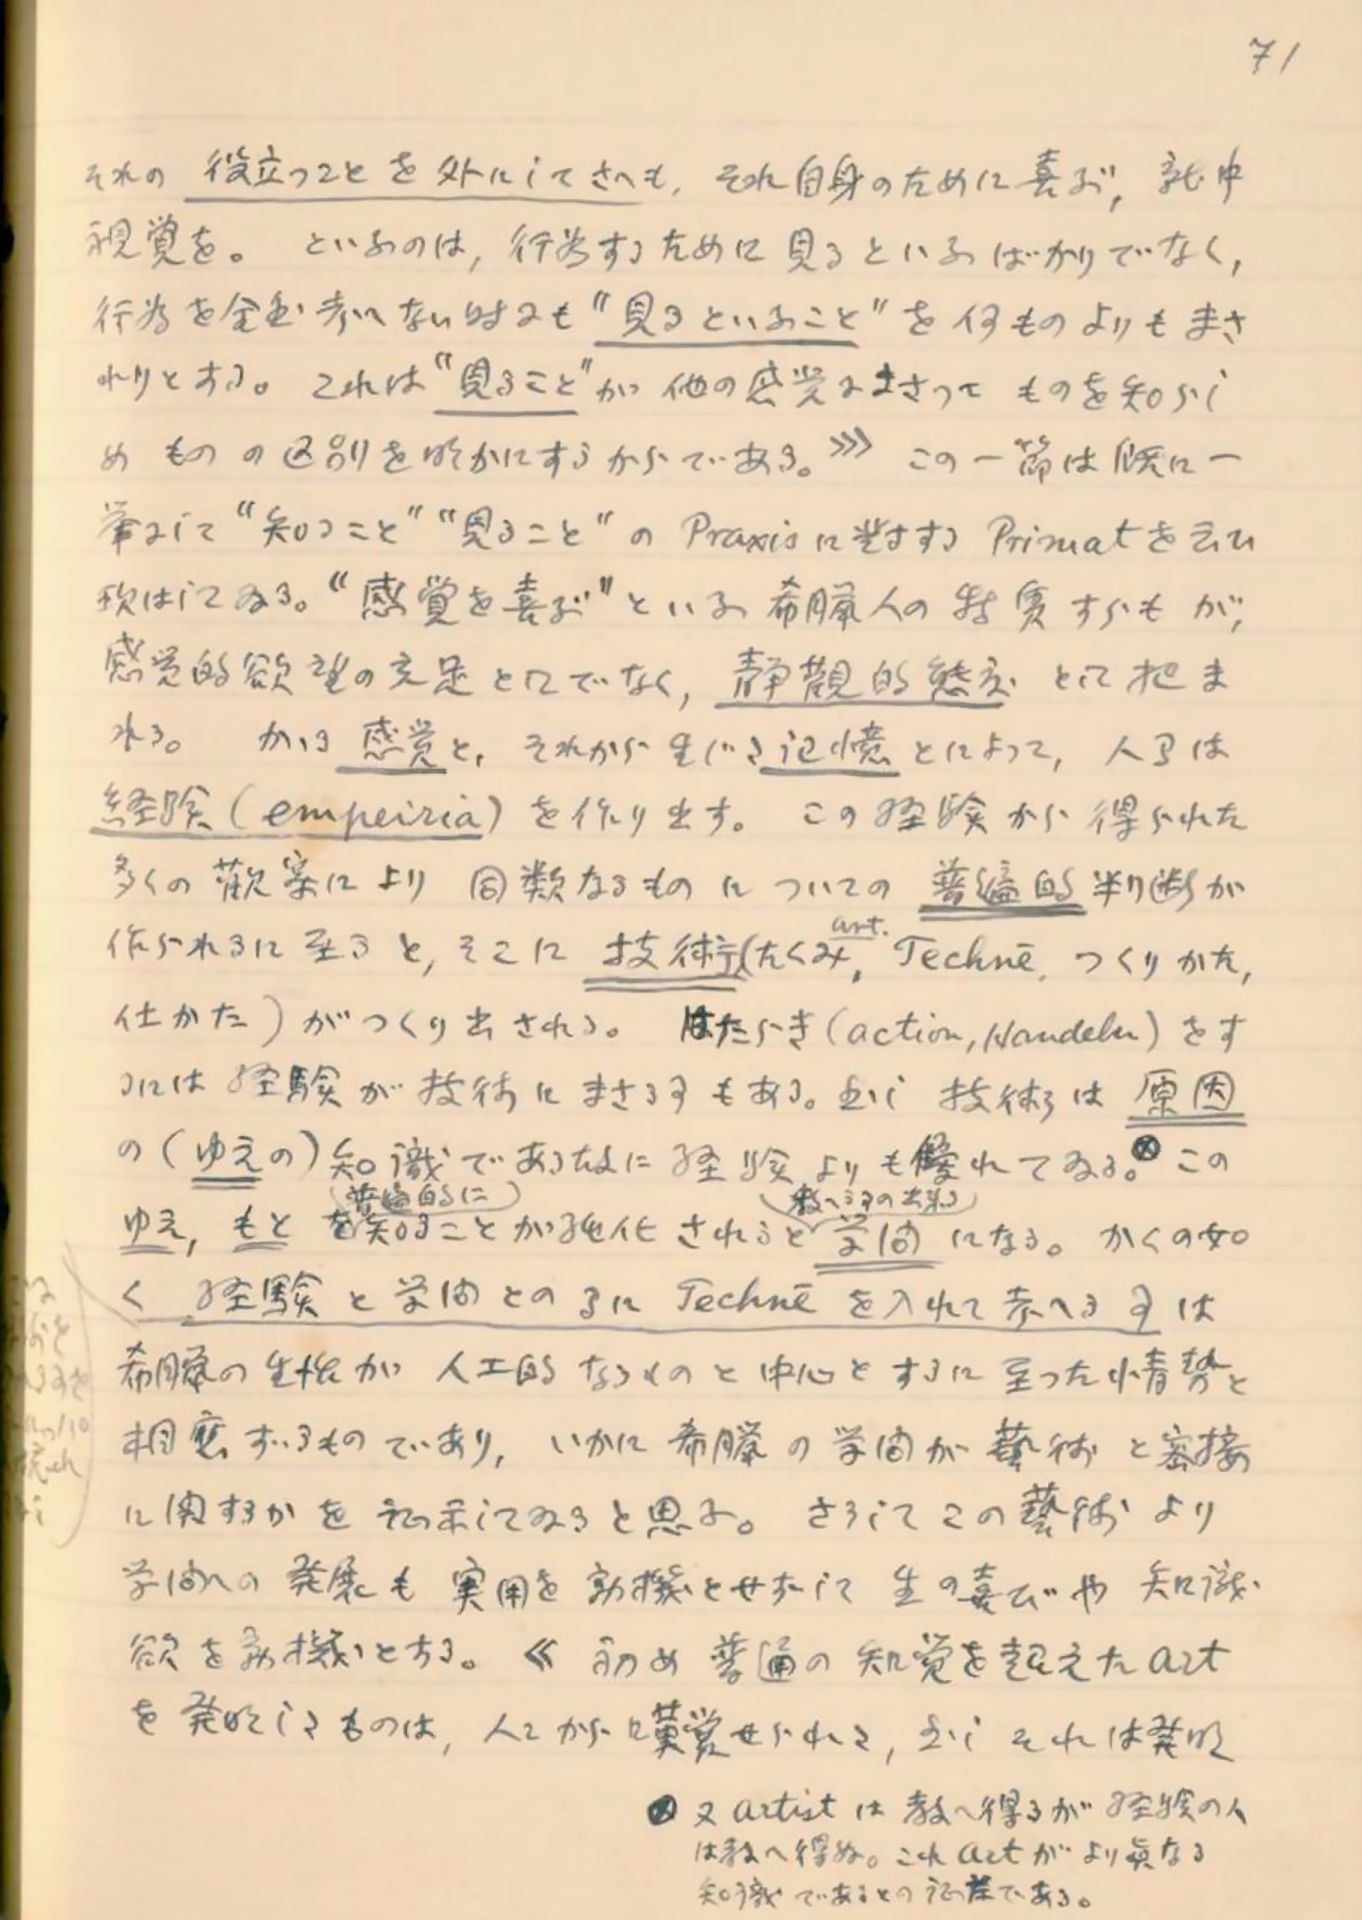 71
それの 役立つことを外にしてさへも, それ自身のために喜ぶ, 就中
視覚を。 といふのは, 行為するために見るといふばかりでなく,
行為を全然考へない時にも“見るといふこと”を何ものよりもまさ
れりとする。 これは“見ること”が他の感覚にまさって ものを知らし
め ものの区別を明かにするからである。⋙ この一節は既に一
挙にして“知ること”“見ること”の Praxis に対する Primat を云ひ
現はしてゐる。“感覚を喜ぶ”といふ希臘人の特質すらもが,
感覚的欲望の充足としてでなく, 静観的態度として把ま
れる。 かゝる感覚と, それから生じた記憶とによって, 人間は
経験(empeiria)を作り出す。 この経験から得られた
多くの観察により 同類なるものについての 普遍的判断が
作られるに至ると, そこに 技術(たくみ, art. Technē, つくりかた,
仕かた)がつくり出される。 はたらき(action, Handeln)をす
るには経験が技術にまさる事もある。然し 技術は 原因
の(ゆえの)知識である故に経験よりも優れてゐる。⊗ この
(普遍的に) (教へる事の出来る)
ゆえ, もとを知ることが純化されると学問になる。かくの如
く 経験と学問との間に Technē を入れて考へる事は
希臘の生活が 人工的なるものを中心とするに至った情勢と
相應ずるものであり, いかに希臘の学問が藝術と密接
に関するかを 証示してゐると思ふ。 さうしてこの藝術より
学問への発展も実用を動機とせずして 生の喜びや 知識
欲を動機とする。≪ 初め普通の知覚を超えた art
を発明したものは, 人々から驚嘆せられた, 然し それは発明
⊗ 又 artist は教へ得るが経験の人
は教へ得ぬ。これ art がより真なる
知識であるとの証左である。